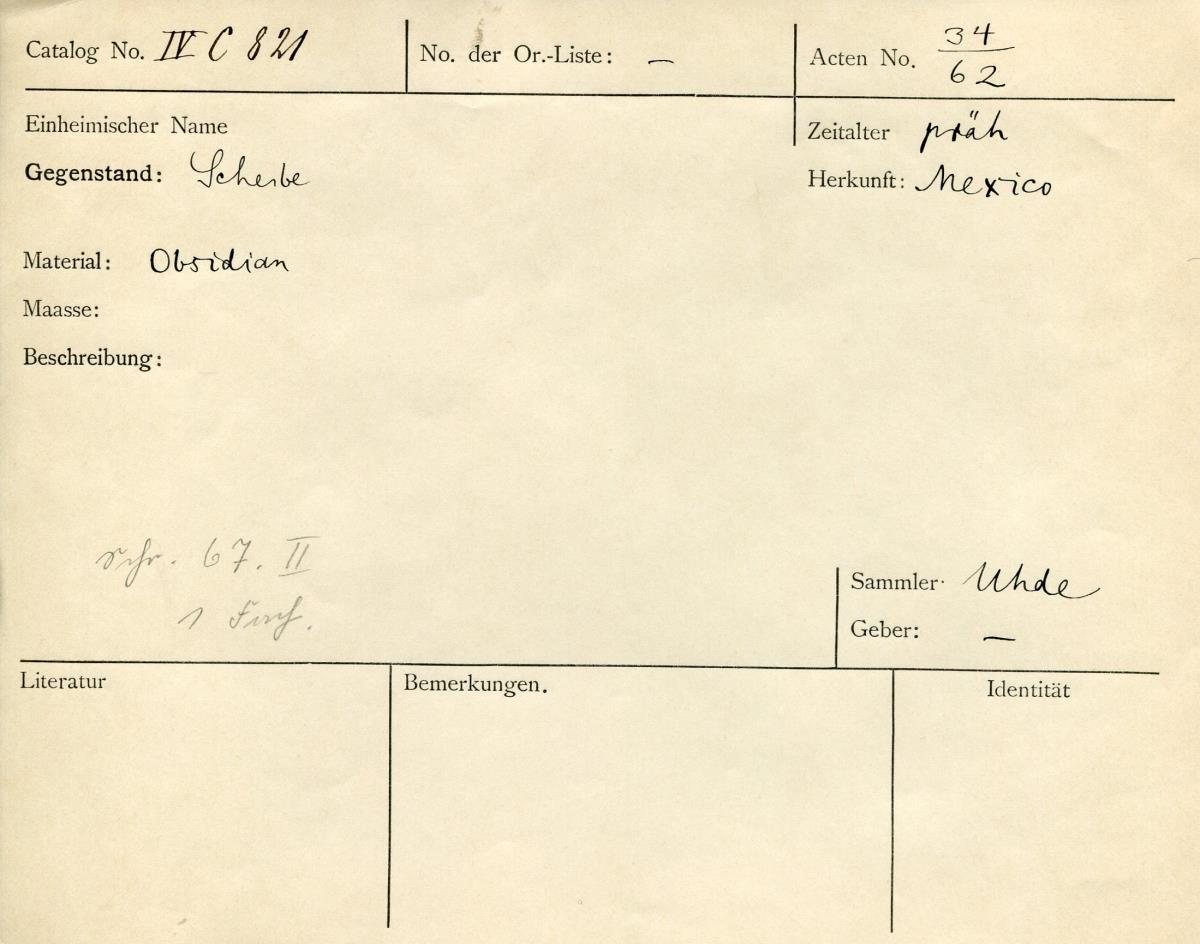 Catalog No. IV C 821 No. der Or.-Liste: — Acten No. 34/62
Einheimischer Name Zeitalter präh
Gegenstand: Scheibe Herkunft: Mexico
Material: Obsidian
Maasse:
Beschreibung:
Schr. 67. II
1 Fach.
Sammler Uhde
Geber: —
Literatur Bemerkungen. Identität